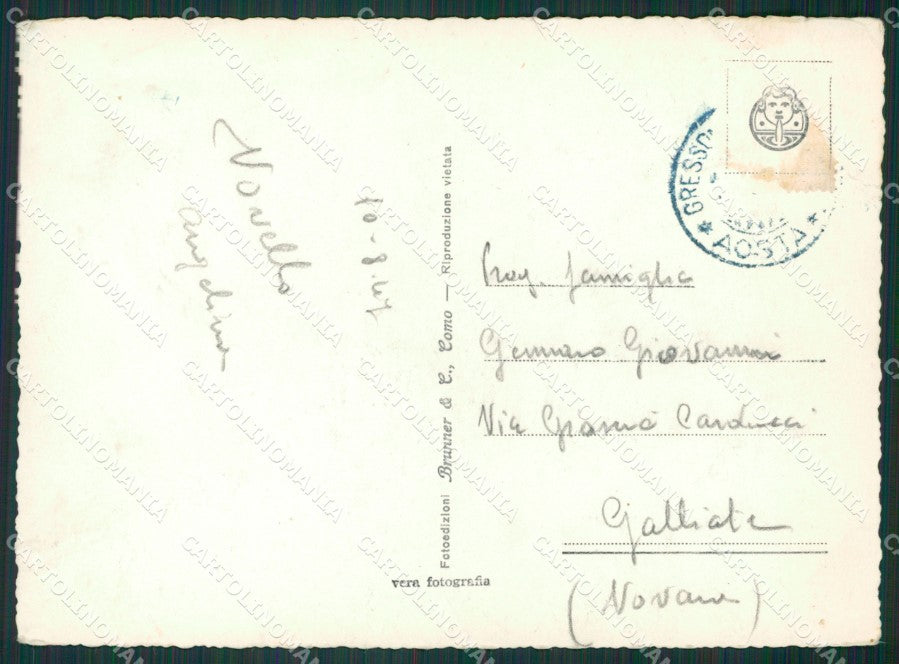 Novello
Angelina
10-8-47
Fotoedizioni Brunner & C., Como — Riproduzione vietata
vera fotografia
GRESSO
* AOSTA *
Preg. famiglia
Gennaro Giovanni
Via Giosuè Carducci
Galliate
(Novara)
CARTOLINOMANIA